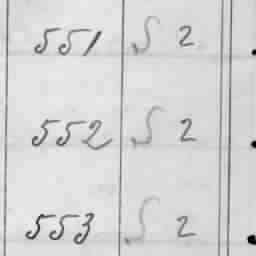 551 S 2
552 S 2
553 S 2